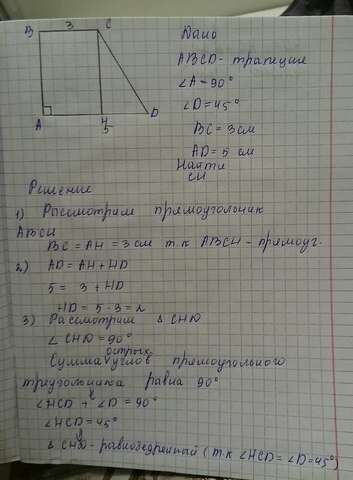 B 3 C
A H D
5
Дано
ABCD - трапеция
∠A = 90°
∠D = 45°
BC = 3 см
AD = 5 см
Найти
CH
Решение
1) Рассмотрим прямоугольник
ABCH
BC = AH = 3 см т.к ABCH - прямоуг.
2) AD = AH + HD
5 = 3 + HD
HD = 5 - 3 = 2
3) Рассмотрим Δ CHD
∠ CHD = 90°
Сумма острых углов прямоугольного
треугольника равна 90°
∠HCD + ∠D = 90°
∠HCD = 45°
Δ CHD - равнобедренный (т.к ∠HCD = ∠D = 45°)